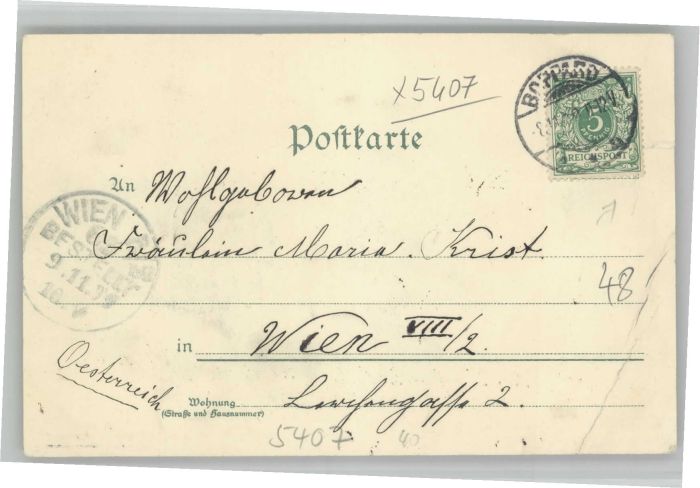 x5407
BOPPARD
5
REICHSPOST
Postkarte
An Wohlgeboren
Fräulein Maria Krist
WIEN
BESTELLT
9.11.99
48
in Wien VIII/2.
Oesterreich
Wohnung
(Straße und Hausnummer)
Lerchengasse 2.
5407
40